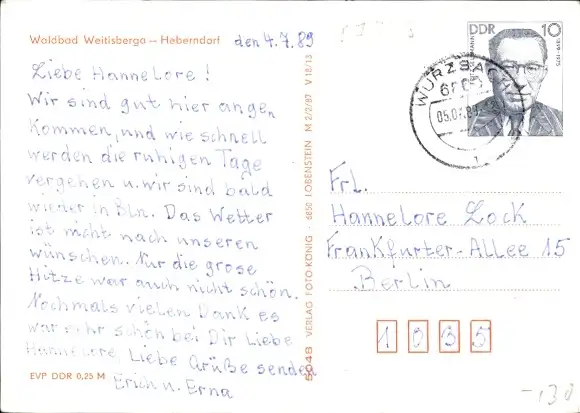 Waldbad Weitisberga – Heberndorf
den 4.7.89
Liebe Hannelore!
Wir sind gut hier angen
Kommen, und wie schnell
werden die ruhigen Tage
vergehen u. wir sind bald
wieder in Bln. Das Wetter
ist nicht nach unseren
wünschen. Nur die grose
Hitze war auch nicht schön.
Nochmals vielen Dank es
war sehr schön bei Dir Liebe
Hannelore. Liebe Grüße senden
Erich u. Erna
EVP DDR 0,25 M
VERLAG FOTO-KÖNIG · 6850 LOBENSTEIN M 2/2/87 V 18/13
DDR 10
1899-1975
WURZBACH
05.07.89
1
Frl.
Hannelore Lock
Frankfurter-Allee 15
Berlin
1035